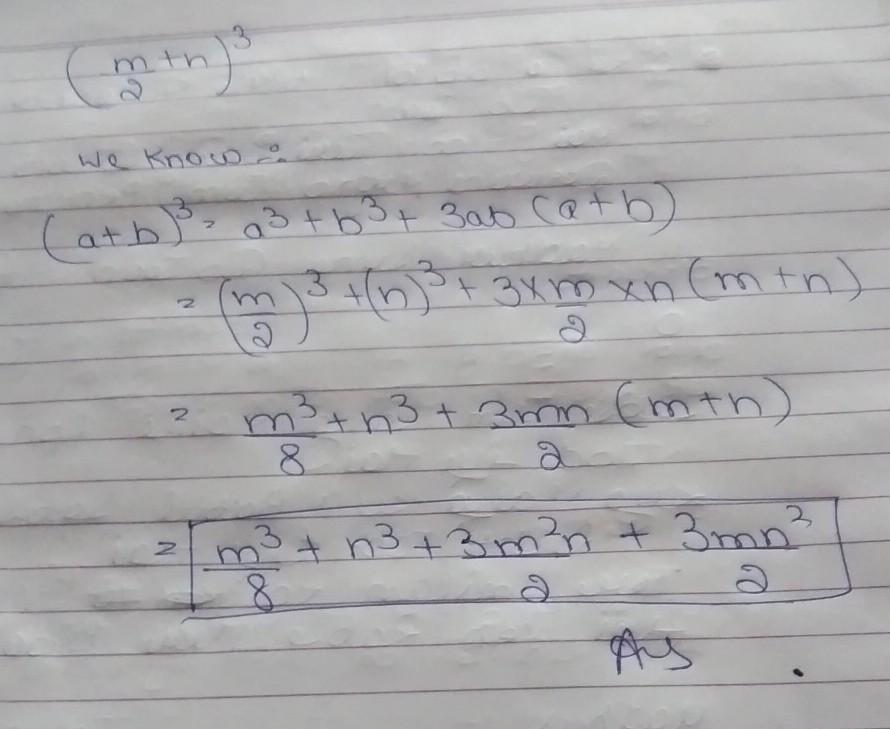 (m/2 + n)³
we know ∴
(a+b)³ = a³ + b³ + 3ab (a+b)
= (m/2)³ + (n)³ + 3×m/2 ×n (m+n)
= m³/8 + n³ + 3mn/2 (m+n)
= m³/8 + n³ + 3m²n/2 + 3mn²/2
Ans